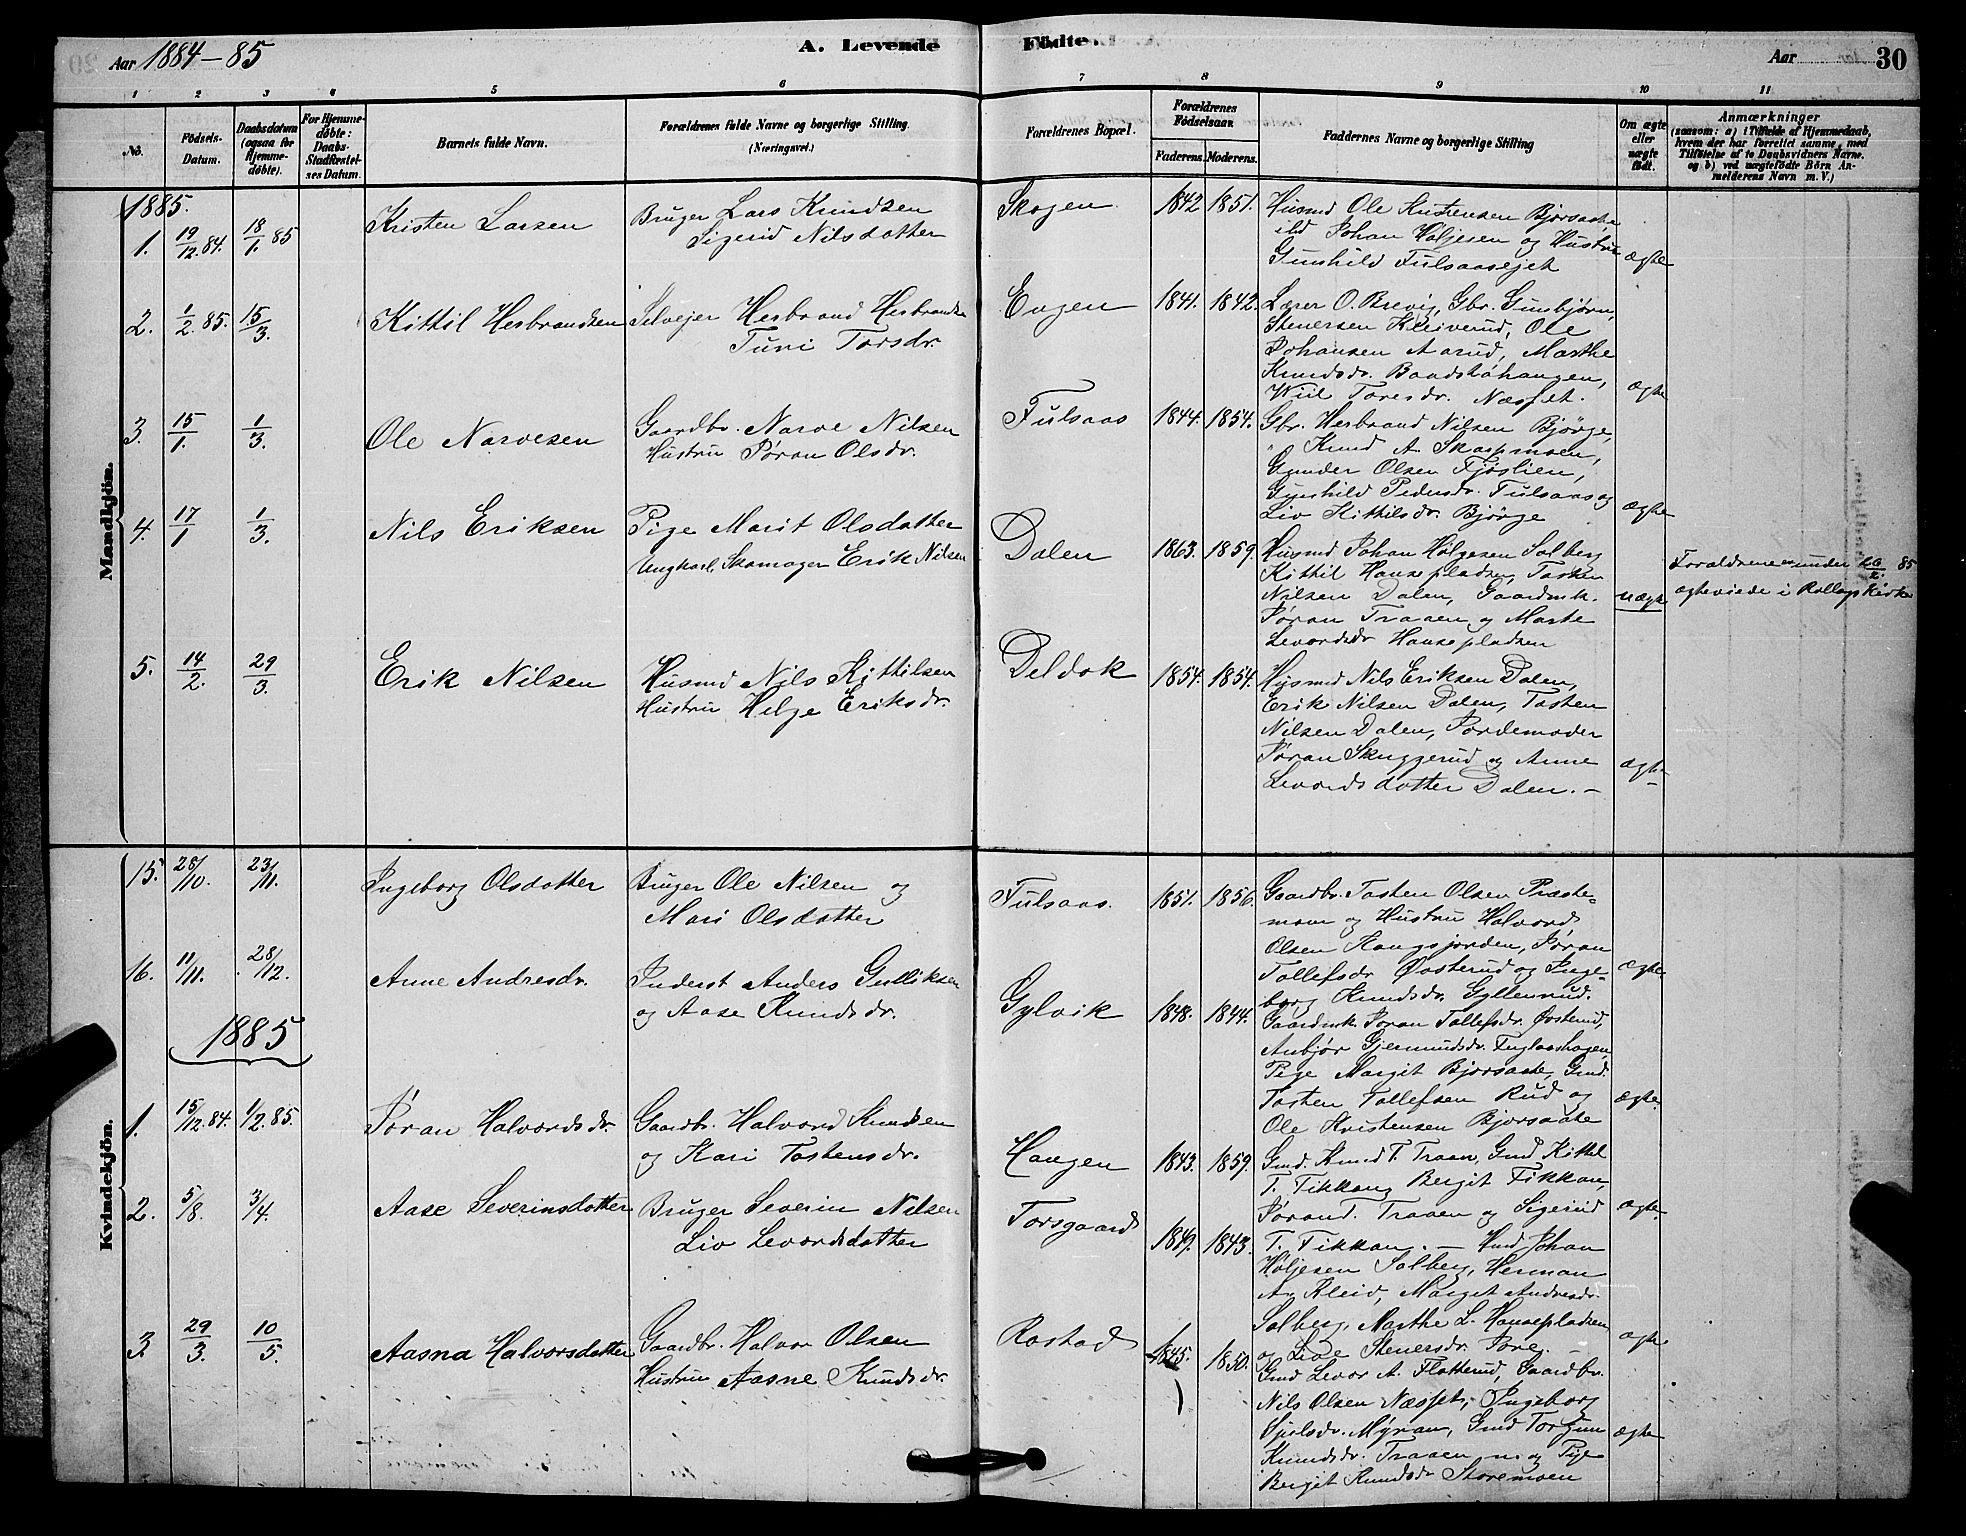 Aar 1884-85
A. Levende
Födte.
Aar
30
1 2 3 4 5 6 7 8 9 10 11
No.
Födsels-Datum.
Daabsdatum (ogsaa for Hjemme-döbte).
For Hjemme-döbte: Daabs-Stadfæstel-ses Datum.
Barnets fulde Navn.
Forældrenes fulde Navne og borgerlige Stilling.
(Næringsvei.)
Forældrenes Bopæl.
Forældrenes Födselsaar.
Faderens. Moderens.
Faddernes Navne og borgerlige Stilling
Om ægte eller uægte födt.
Anmærkninger
(saasom: a) i Tilfælde af Hjemmedaab,
hvem der har forrettet samme, med
Tilföielse af to Daabsvidners Navne,
og b) ved uægtefödte Börn An-
melderens Navn m. V.)
Mandkjön.
1885.
1. 19/12 84. 18/1. 85 Kristen Larsen
Bruger Lars Knudsen
Sigerid Nilsdatter
Skogen 1842 1851.
Husmd Ole Kristensen Bjorsaate
Johan Holjesen og Hustru
Gunhild Fulsaasejet
ægte
2. 1/2. 85. 15/3. Kittil Herbrandsen
Selvejer Herbrand Herbrandsen
Turi Torsdr.
Engen 1841. 1842.
Lærer O. Brevig, Gbr. Gunbjørn
Stenersen Kleiverud, Ole
Johansen Aarud, Marthe
Knudsdr. Baadstøhaugen,
Toresdr. Næsset.
ægte
3. 15/1. 1/3. Ole Narvesen
Gaardbr. Narve Nilsen
Hustru Jøran Olsdr.
Fulsaas 1844. 1854.
Gbr. Herbrand Nilsen Bjørge,
" Knud A. Skarpmoen,
Gunder Olsen Fjøslien,
Gunhild Pedersdr. Fulsaas og
Liv Kittilsdr. Bjørge
ægte
4. 17/1 1/3. Nils Eriksen
Pige Marit Olsdatter
Ungkarl Skomager Erik Nilsen
Dalen 1863. 1859.
Husmd Johan Holgesen Solberg
Kittil Hansepladsen, Tosten
Nilsen Dalen, Gaardmk.
Jøran Traaen og Marte
Levordsdr Hansepladsen
uægte
Forældrene under 26/2. 85
ægteviede i Rollags Kirke
5. 14/2. 29/3. Erik Nilsen
Husmd Nils Kittilsen
Hustru Helge Eriksdr.
Deldok 1854. 1854.
Husmd Nils Eriksen Dalen,
Erik Nilsen Dalen, Tosten
Nilsen Dalen, Jordemoder
Jøran Skuggerud og Anne
Levordsdatter Dalen. -
ægte
Kvindekjön.
15. 28/10. 23/11. Ingeborg Olsdatter
Bruger Ole Nilsen og
Mari Olsdatter
Fulsaas. 1851. 1856.
Gaardbr. Tosten Olsen Præste-
moen og Hustru Halvord
Olsen Haugsjorden, Jøran
Tollefsdr Østerud og Inge-
borg Knudsdr. Gyllenrud.
ægte
16. 11/11. 28/12. Anne Andresdr.
Inderst Anders Gulliksen
og Aase Knudsdr.
Gylvik 1848. 1844.
Gaardmk. Jøran Tollefsdr. Østerud,
Anbjør Gjermundsdr. Fuglaashagen,
Pige Margit Bjorsaate, Gmd.
Tosten Tollefsen Rud og
Ole Kristensen Bjorsaate
ægte.
1885
1. 15/12. 84. 1/2. 85. Jøran Halvordsdr.
Gaardbr. Halvord Knudsen
og Kari Tostensdr.
Haugen 1843. 1859.
Gmd. Knud T. Traaen, Gmd Kittil
T. Fikkan, Bergit Fikkan,
Jøran T. Traaen og Sigerid
T. Fikkan. -
ægte.
2. 5/8. 3/4. Aase Severinsdatter
Bruger Severin Nilsen
Liv Levordsdatter
Torsgaard 1849. 1843.
Hmd Johan
Høljesen Solberg, Herman
A. Kleiv, Marget Andresdr.
Solberg, Marthe L. Hansepladsen
og Live Stenersdr. Jore. -
ægte
3. 29/3. 10/5. Aasna Halvorsdatter
Gaardbr. Halvor Olsen
Hustru Aasne Knudsdr.
Rostad 1845. 1850.
Gmd Levor A. Flatterud, Gaardbr.
Nils Olsen Næsset, Ingeborg
Mÿran, Gmd Torgun
Knudsdr. Traaen og Pige
Bergit Knudsdr Storemoen
ægte